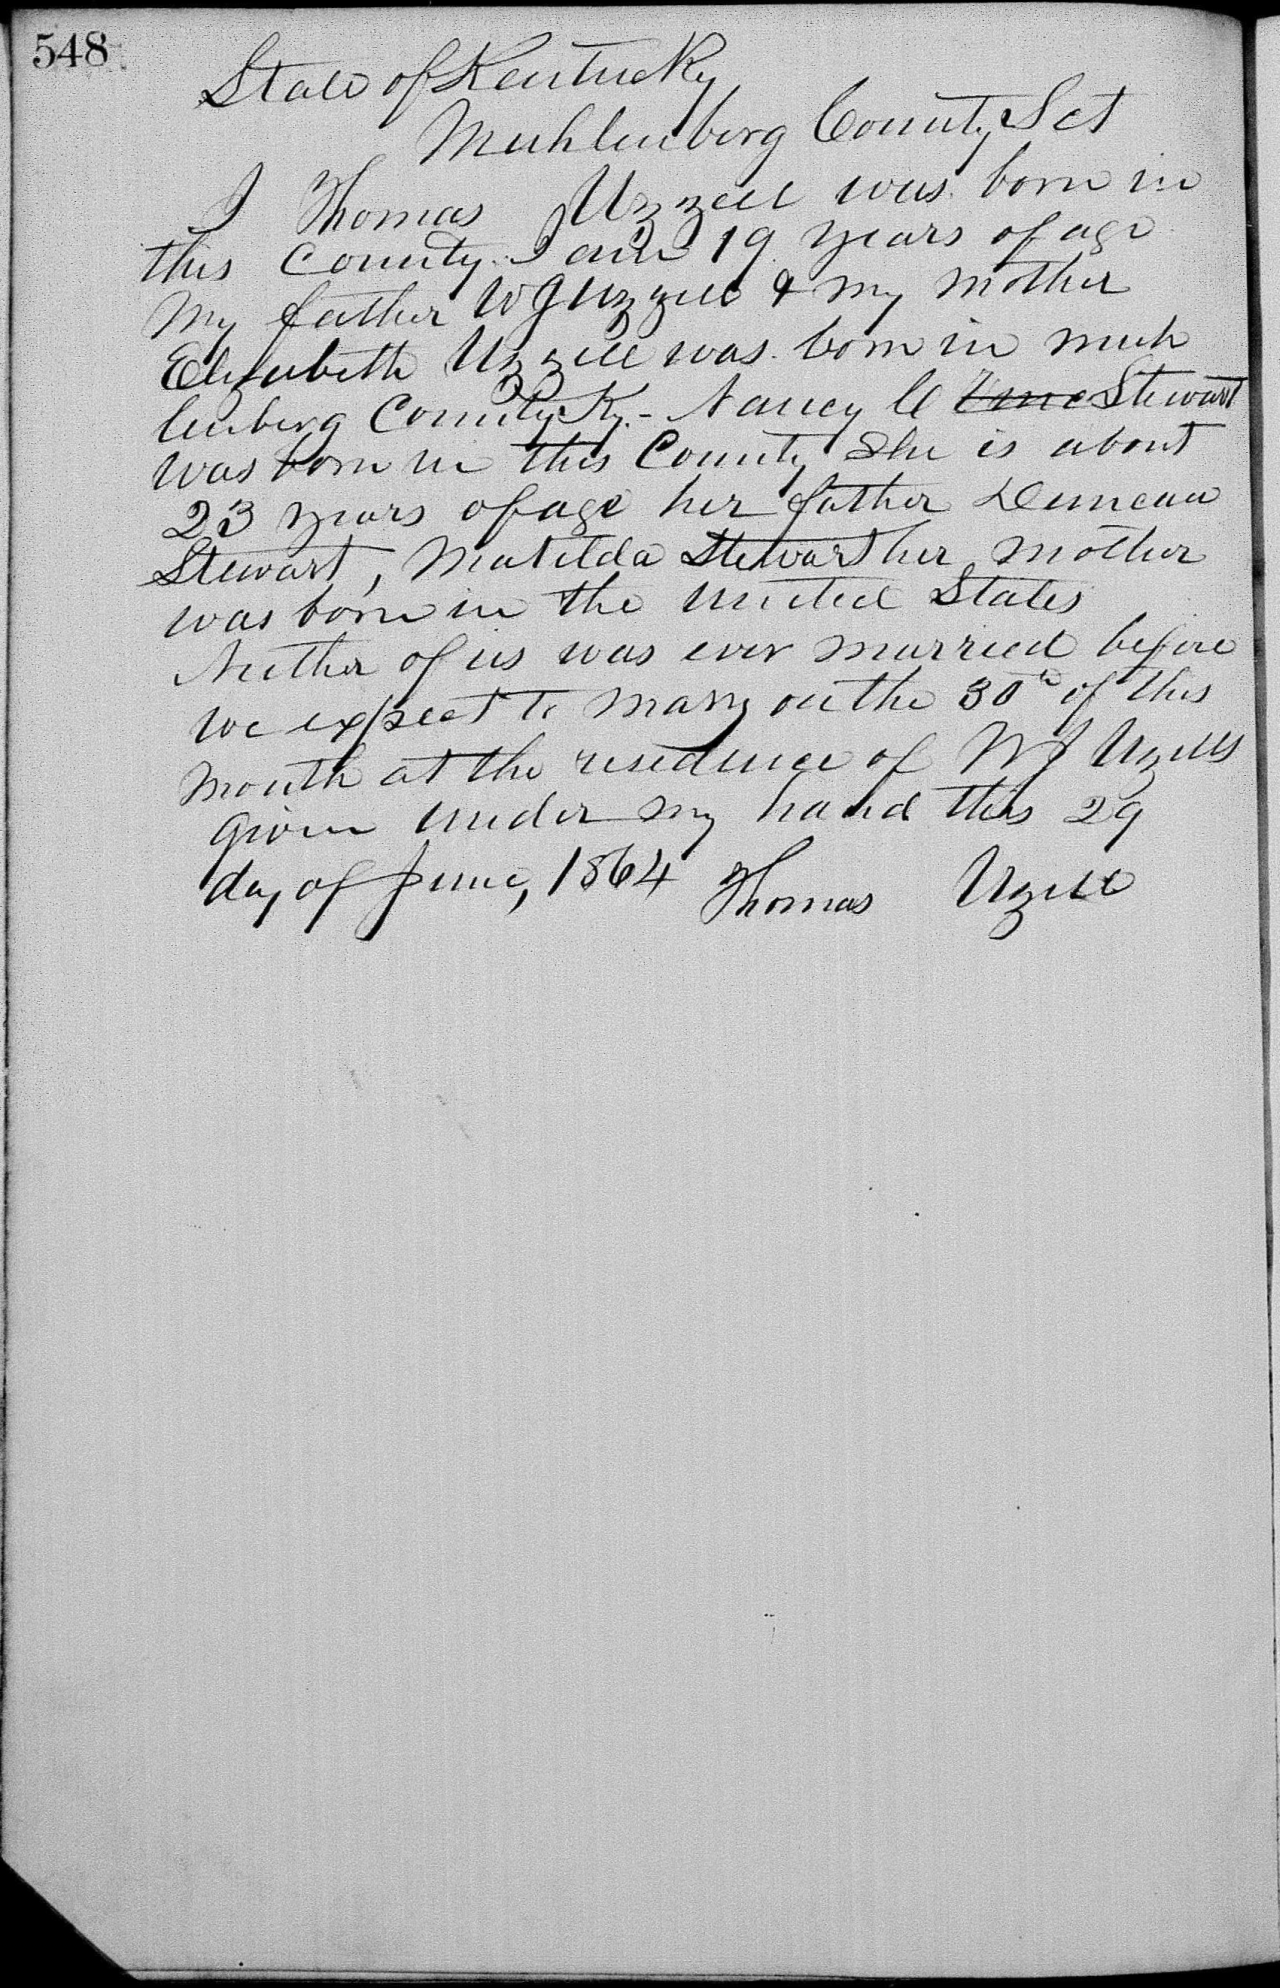 548
State of Kentucky
Muhlenberg County Sct
I Thomas Uzzell was born in
this County. I am 19 years of age
My father W J Uzzell & my mother
Elizabeth Uzzell was born in muh
lenberg County Ky. - Nancy C Stewart
was born in this County She is about
23 years of age her father Duncan
Stewart, Matilda Stewart her mother
was born in the United States
Neither of us was ever married before
we expect to marry on the 30th of this
month at the residence of W J Uzells
Given under my hand this 29
day of June, 1864 Thomas Uzell